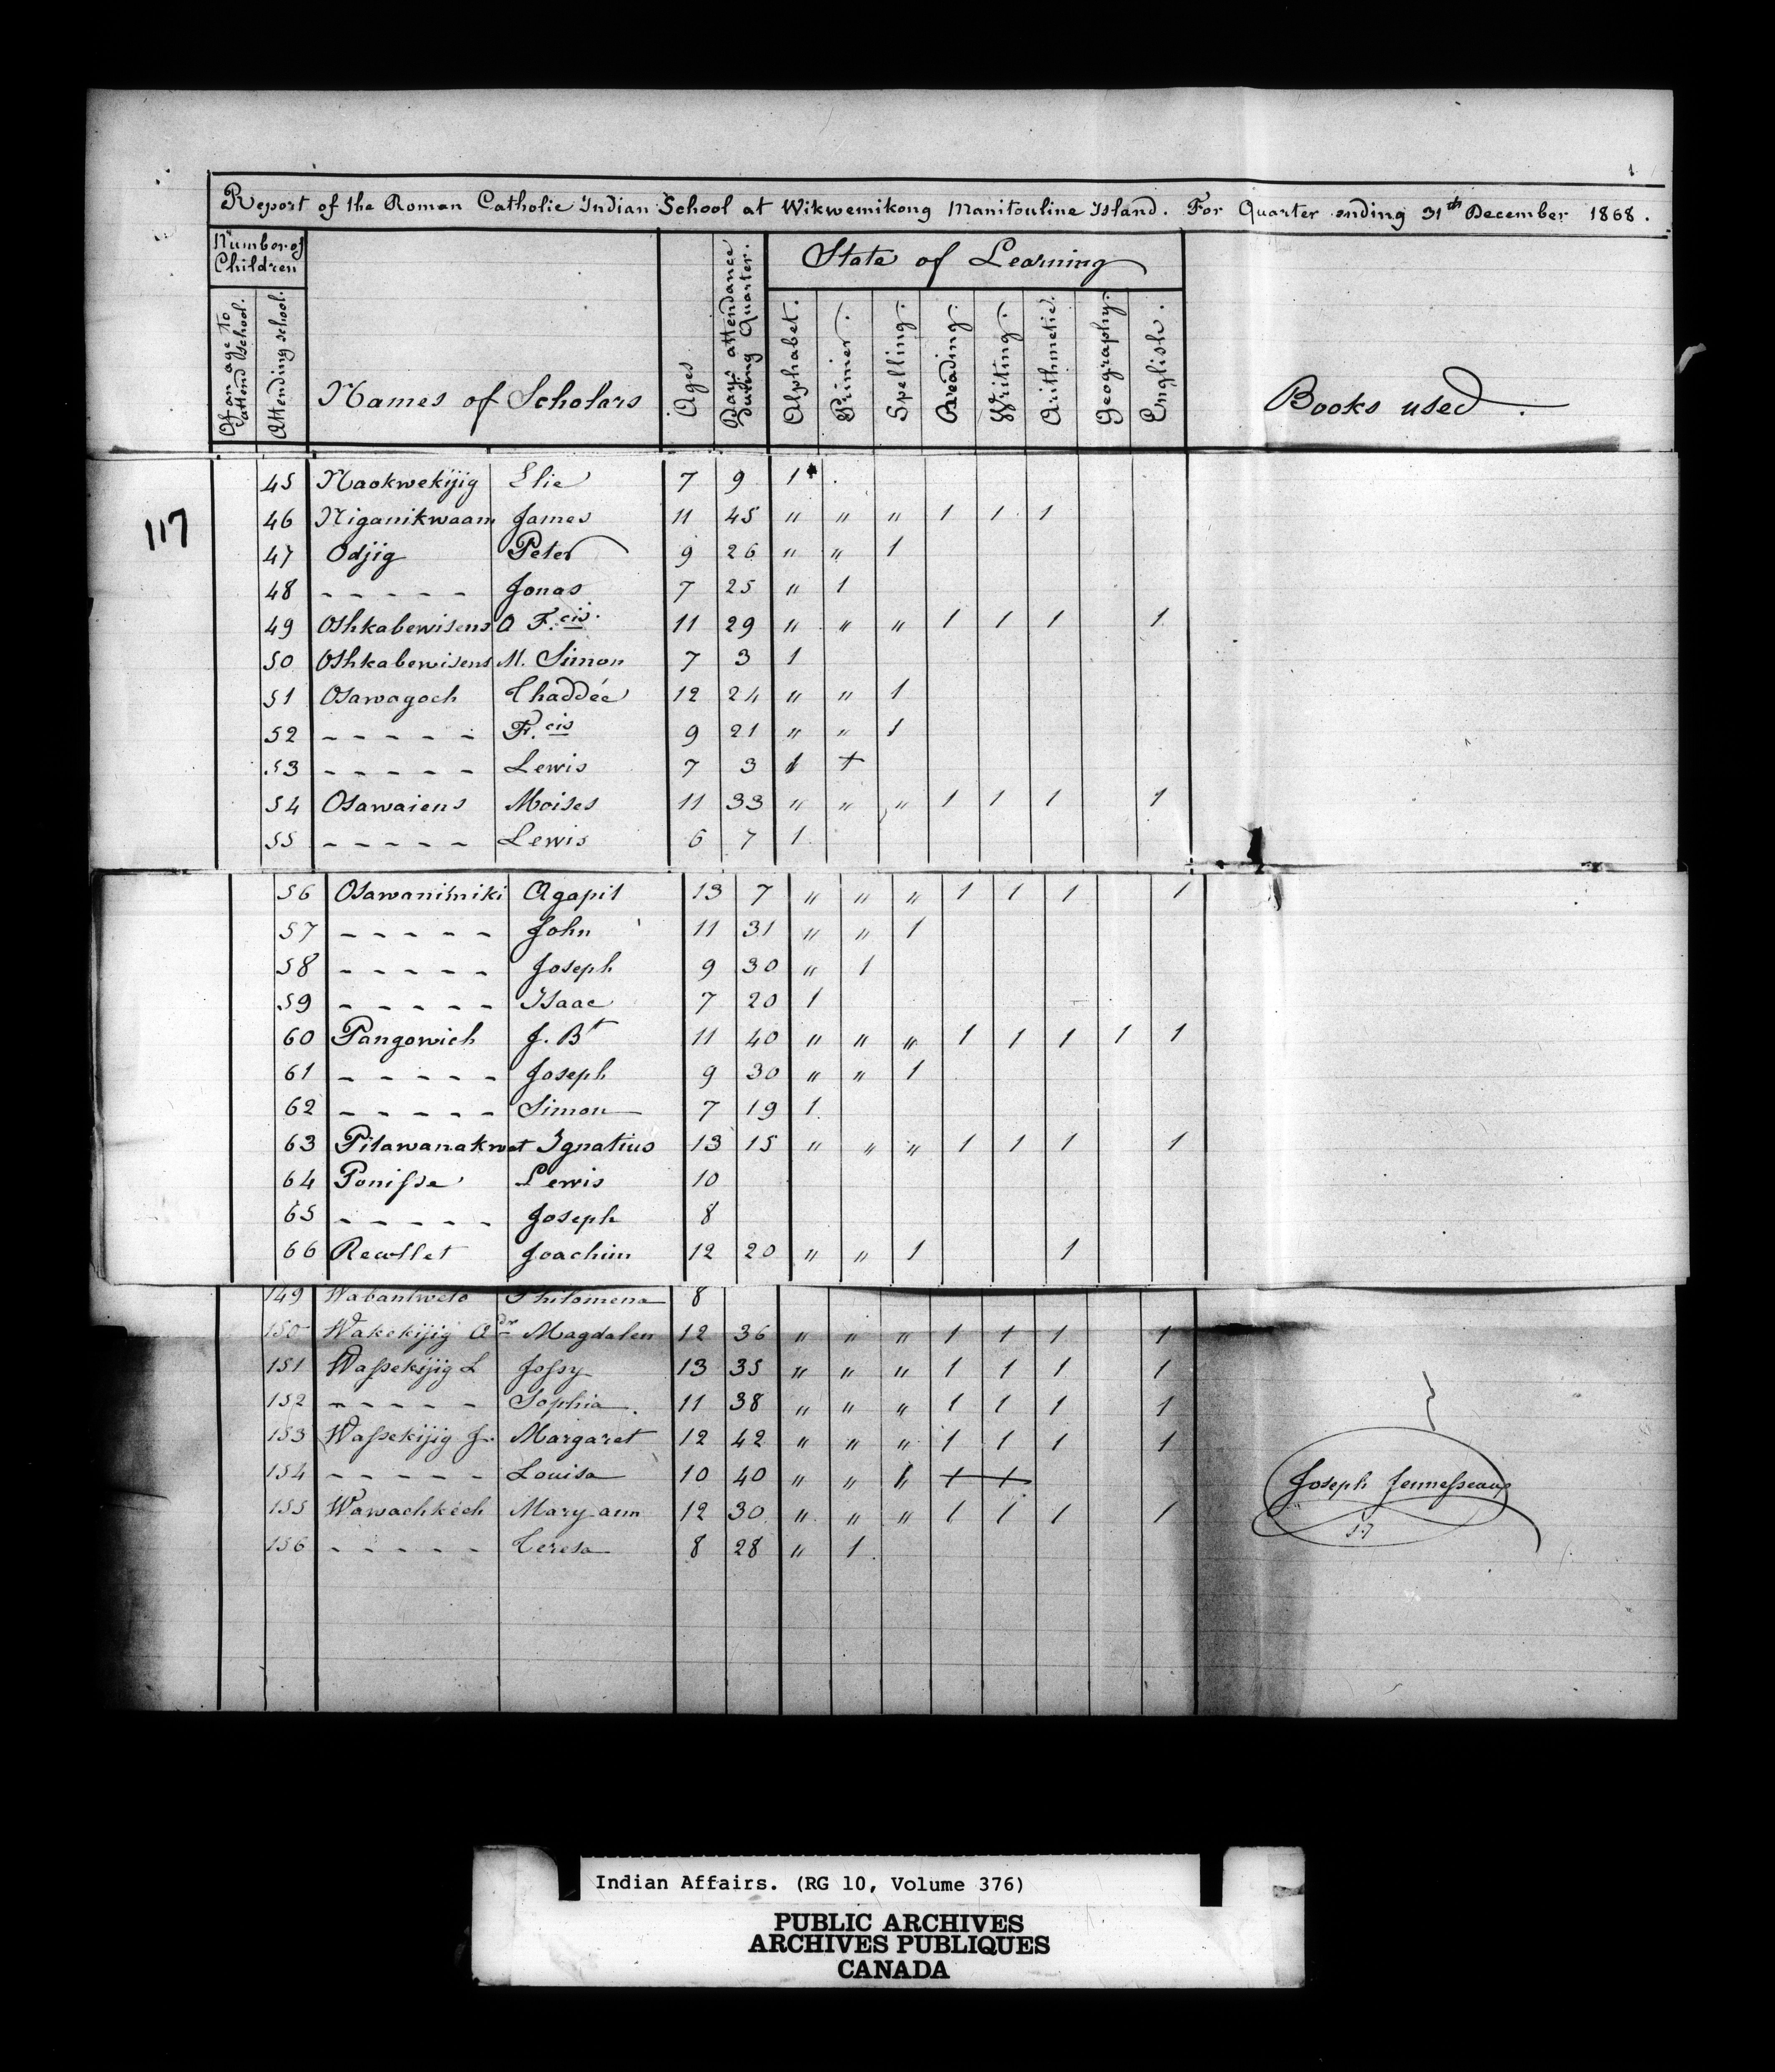 Report of the Roman Catholic Indian School at Wikwemikong Manitouline Island. For Quarter ending 31th December 1868.
Number of Children
State of Learning
Of an age to attend school.
Attending school.
Names of Scholars
Ages
Days attendance during Quarter.
Alphabet.
Primer.
Spelling.
Reading.
Writing.
Arithmetic.
Geography.
English.
Books used.
117
45 Naokwekijig Elie 7 9 1
46 Niganikwaam James 11 45 " " " 1 1 1
47 Odjig Peter 9 26 " " 1
48 - - - - - Jonas 7 25 " 1
49 Oshkabewisens A F.cis. 11 29 " " " 1 1 1 1
50 Oshkabewisens M. Simon 7 3 1
51 Osawagoch Thaddée 12 24 " " 1
52 - - - - - F.cis 9 21 " " 1
53 - - - - - Lewis 7 3 1 +
54 Osawaiens Moises 11 33 " " " 1 1 1 1
55 - - - - - Lewis 6 7 1
56 Osawanimiki Agapit 13 7 " " " 1 1 1 1
57 - - - - - John 11 31 " " 1
58 - - - - - Joseph 9 30 " 1
59 - - - - - Isaac 7 20 1
60 Pangowich J. Bt 11 40 " " " 1 1 1 1 1
61 - - - - - Joseph 9 30 " " 1
62 - - - - - Simon 7 19 1
63 Pitawanakwat Ignatius 13 15 " " " 1 1 1 1
64 Ponisse Lewis 10
65 - - - - - Joseph 8
66 Recollet Joachim 12 20 " " 1 1
149 Philomena 8
150 Wakekijig Adr Magdalen 12 36 " " " 1 1 1 1
151 Wassekijig L Jossy 13 35 " " " 1 1 1 1
152 - - - - - Sophia. 11 38 " " " 1 1 1 1
153 Wassekijig J. Margaret 12 42 " " " 1 1 1 1
154 - - - - - Louisa 10 40 " " 1 + +
155 Wawachkech Mary ann 12 30 " " " 1 1 1 1
156 - - - - - Teresa 8 28 " 1
Joseph Jennesseaux
Indian Affairs. (RG 10, Volume 376)
PUBLIC ARCHIVES
ARCHIVES PUBLIQUES
CANADA